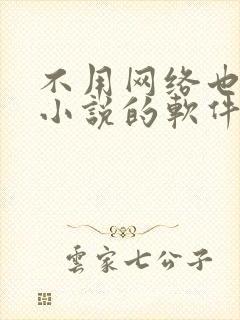 不用网络也
小説的軟件
雲家七公子